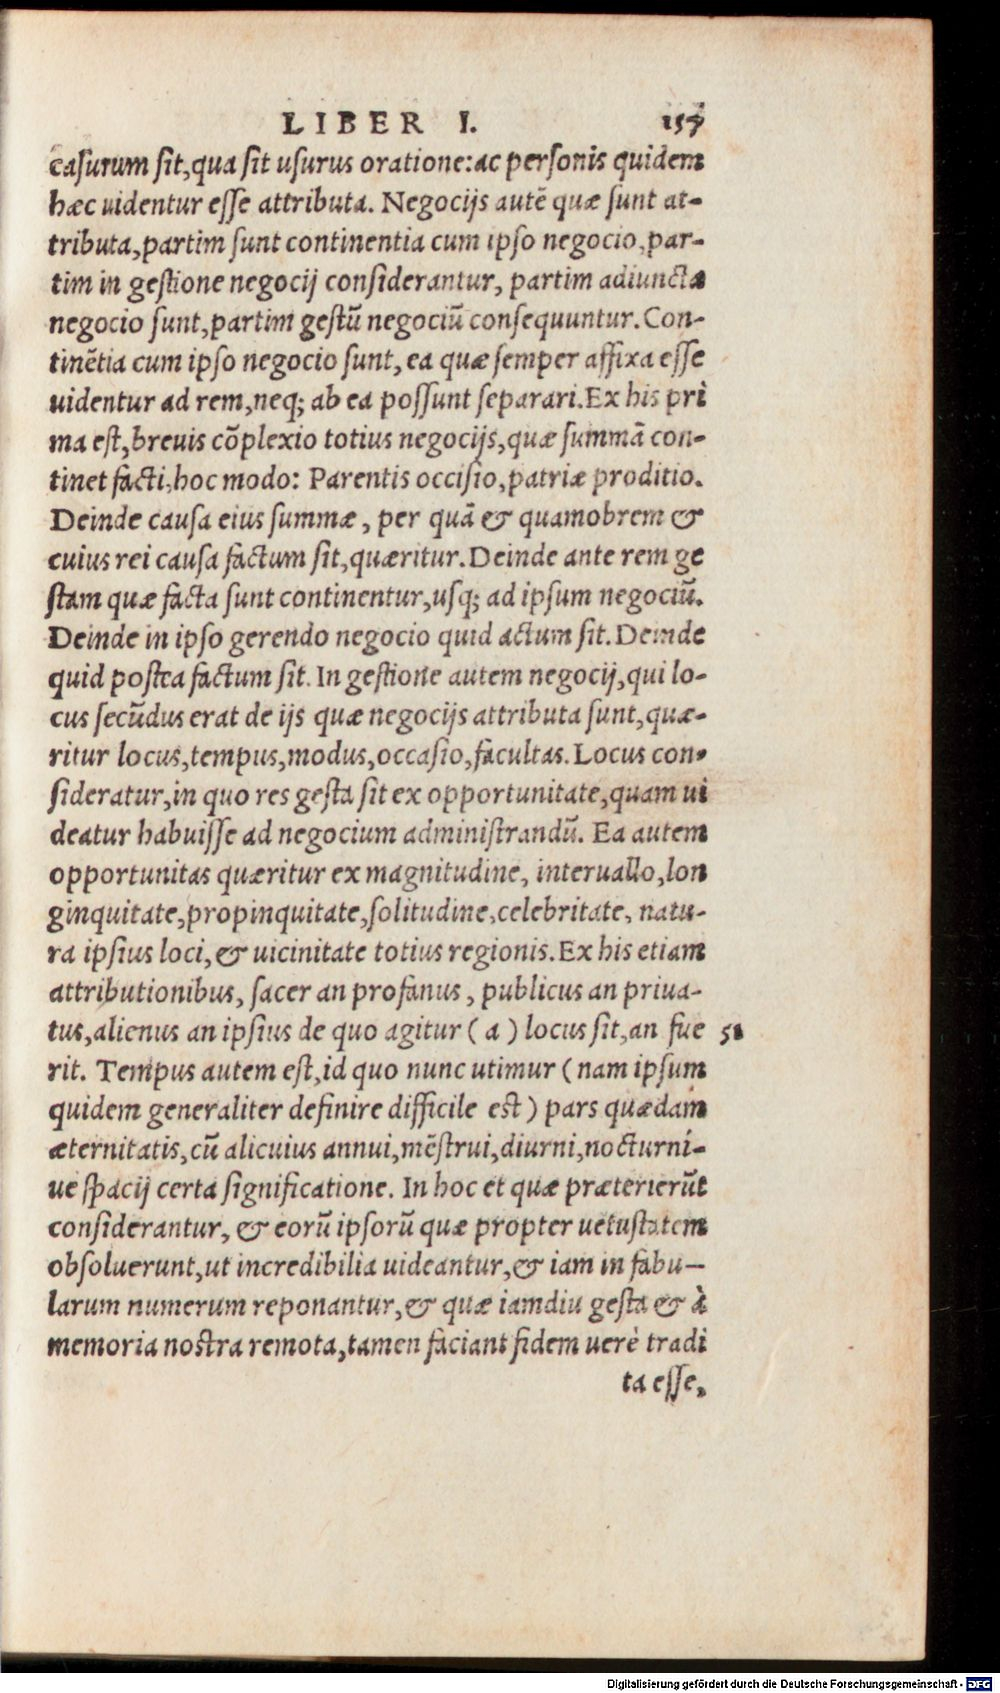 LIBER I. 157
casurum sit,qua sit usurus oratione:ac personis quidem
hæc uidentur esse attributa. Negocijs autẽ quæ sunt at-
tributa,partim sunt continentia cum ipso negocio,par-
tim in gestione negocij considerantur, partim adiuncta
negocio sunt,partim gestũ negociũ consequuntur.Con-
tinẽtia cum ipso negocio sunt, ea quæ semper affixa esse
uidentur ad rem,neq; ab ea possunt separari.Ex his pri
ma est,breuis cõplexio totius negocijs,quæ summã con-
tinet facti,hoc modo: Parentis occisio,patriæ proditio.
Deinde causa eius summæ, per quã & quamobrem &
cuius rei causa factum sit,quæritur.Deinde ante rem ge
stam quæ facta sunt continentur,usq; ad ipsum negociũ.
Deinde in ipso gerendo negocio quid actum sit.Deinde
quid postea factum sit. In gestione autem negocij,qui lo-
cus secũdus erat de ijs quæ negocijs attributa sunt,quæ-
ritur locus,tempus,modus,occasio,facultas.Locus con-
sideratur,in quo res gesta sit ex opportunitate,quam ui
deatur habuisse ad negocium administrandũ. Ea autem
opportunitas quæritur ex magnitudine, interuallo,lon
ginquitate,propinquitate,solitudine,celebritate, natu-
ra ipsius loci,& uicinitate totius regionis.Ex his etiam
attributionibus, sacer an profanus, publicus an priua-
tus,alienus an ipsius de quo agitur (a) locus sit,an fue 51
rit. Tempus autem est,id quo nunc utimur (nam ipsum
quidem generaliter definire difficile est) pars quædam
æternitatis,cũ alicuius annui,mẽstrui,diurni,nocturni-
ue spacij certa significatione. In hoc et quæ præterierũt
considerantur, & eorũ ipsorũ quæ propter uetustatem
obsoluerunt,ut incredibilia uideantur,& iam in fabu-
larum numerum reponantur,& quæ iamdiu gesta & à
memoria nostra remota,tamen faciant fidem uerè tradi
ta esse,
Digitalisierung gefördert durch die Deutsche Forschungsgemeinschaft - DFG